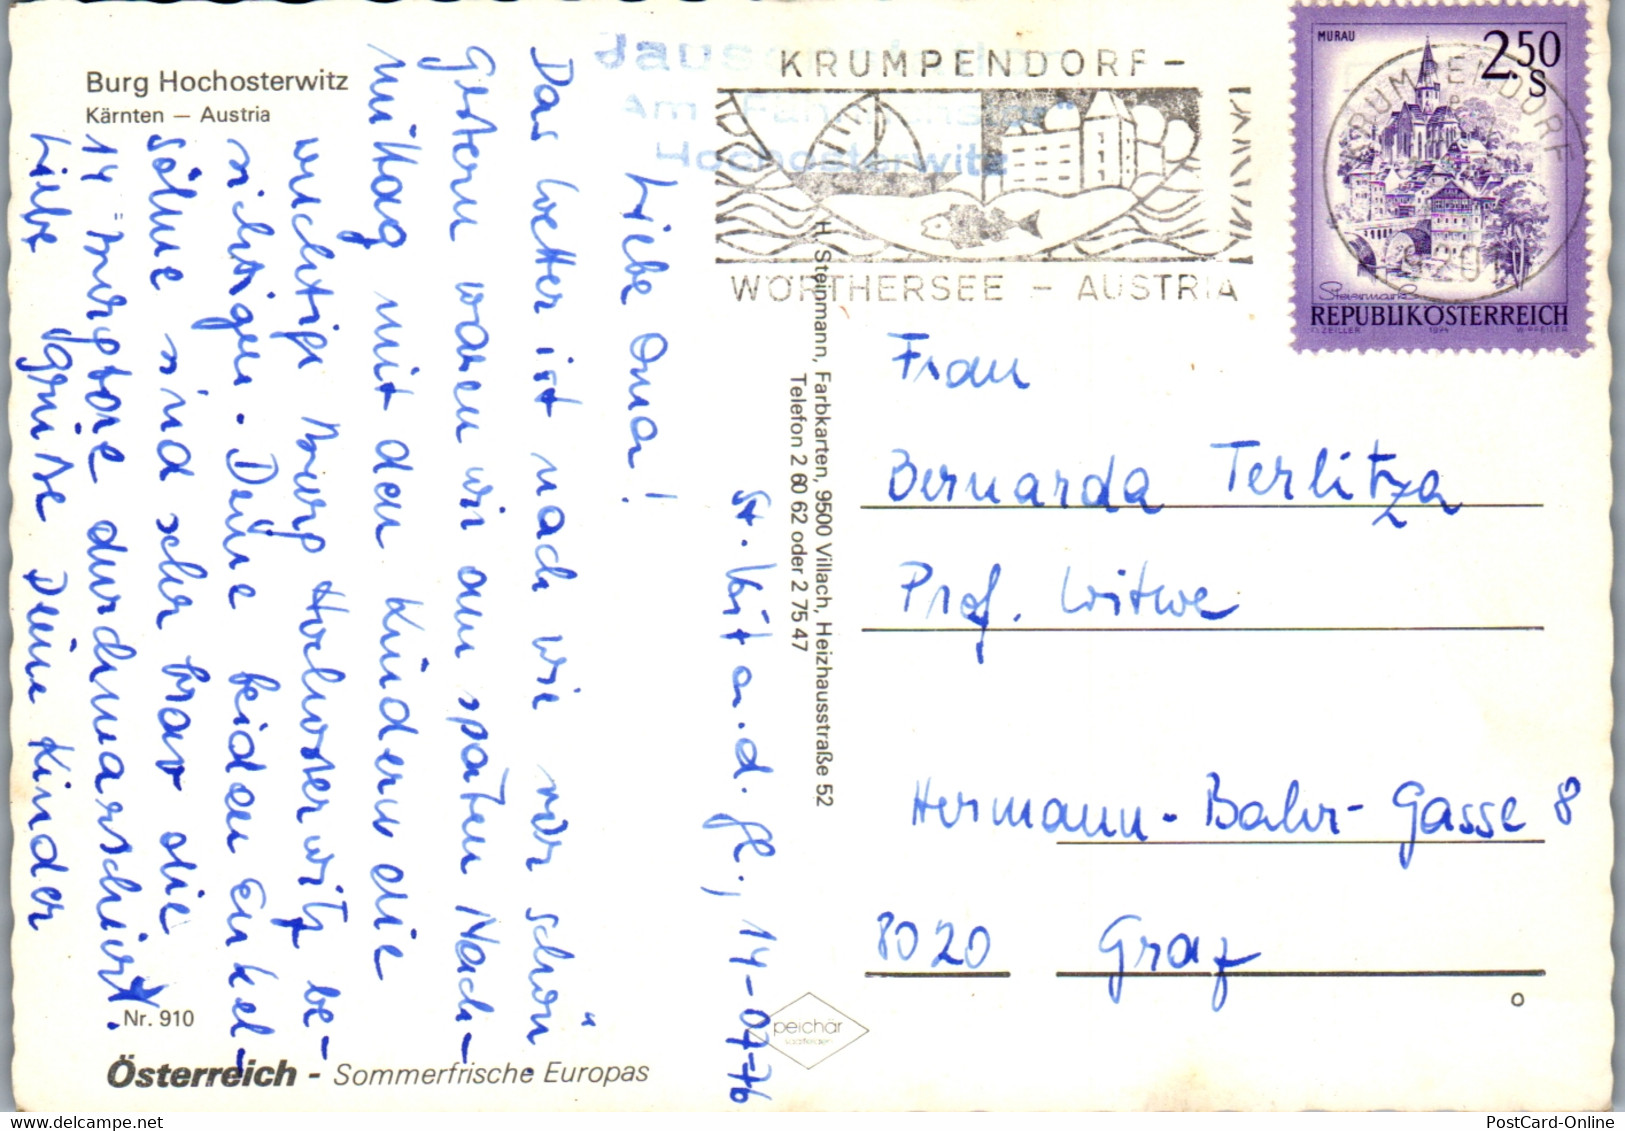 Burg Hochosterwitz
Kärnten — Austria
St. Veit a. d. Gl., 14-07-76
Liebe Oma!
Das Wetter ist nach wie vor schön.
Gestern waren wir am späten Nach-
mittag mit den Kindern die
wuchtige Burg Hochosterwitz be-
sichtigen. Deine beiden Enkel-
söhne sind sehr brav die
14 Burgtore durchmarschiert.
Liebe Grüße Deine Kinder
Nr. 910
Österreich - Sommerfrische Europas
H. Steinmann, Farbkarten, 9500 Villach, Heizhausstraße 52
Telefon 2 60 62 oder 2 75 47
peichär
saalfelden
Hochosterwitz
KRUMPENDORF -
WÖRTHERSEE - AUSTRIA
MURAU
2.50
S
KRUMPENDORF
9201
Steiermark
REPUBLIK ÖSTERREICH
O. ZEILLER 1974 W. PFEILER
Frau
Bernarda Terlitza
Prof. Witwe
Hermann-Bahr-Gasse 8
8020 Graz
PostCard-Online
delcampe.net